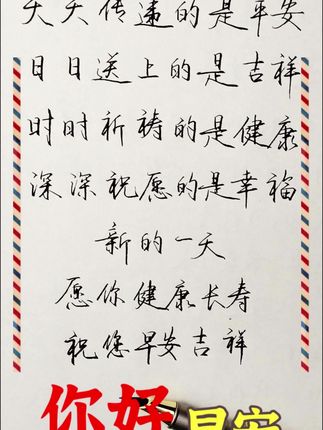 天天传递的是平安
日日送上的是吉祥
时时祈祷的是健康
深深祝愿的是幸福
新的一天
愿你健康长寿
祝您早安吉祥
你好 早安